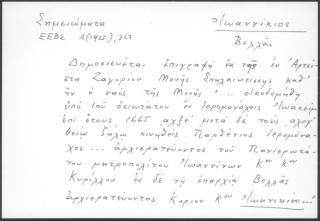 Σημειώματα Ἰωαννίκιος
ΕΕΒΣ 2(1925), 327 Βελλᾶς
Δημοσιεύεται ἐπιγραφὴ ἐκ τῆς ἐν Ἀρτσί-
στα Ζαγορίου Μονῆς Σπηλαιωτίσσης καθ'
ἣν ὁ ναὸς τῆς Μονῆς "... οἰκοδομήθη
ὑπὸ τοῦ ὁσιωτάτου ἐν ἱερομονάχοις Ἰωακεὶμ
ἐπὶ ἔτους 1665 αχξε΄ μετὰ δὲ τοὺς
ζήλῳ κινηθεὶς Παρθένιος ἱερομόνα-
χος ... ἀρχιερατεύοντος τοῦ Πανιερωτά-
του μητροπολίτου Ἰωαννίνων Κου Κου
Κυρίλλου ἐν δὲ τῇ ἐπαρχίᾳ Βελλᾶς
ἀρχιερατεύοντος Κυρίου Κου Ἰωαννικίου"